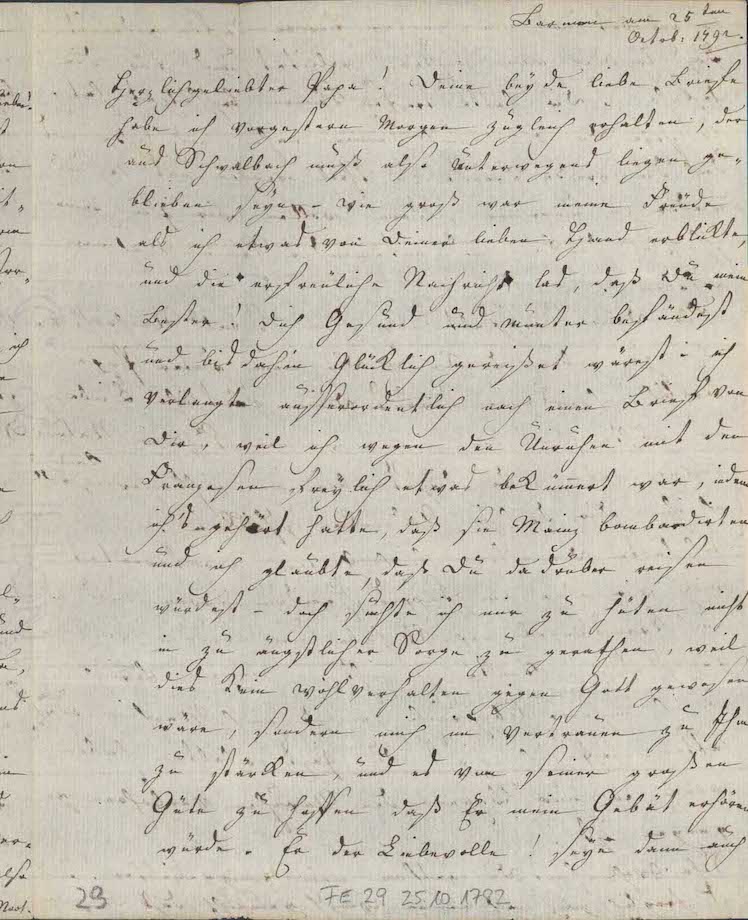 Barmen am 25ten
Octob: 1792.
Herzlichgeliebter Papa! Deine beyde liebe Briefe
habe ich vorgestern Morgen zugleich erhalten, der
aus Schwalbach muß also Unterwegens liegen ge-
blieben seyn – wie groß war meine Freude
als ich etwas von Deiner lieben Hand erblickte,
und die erfreuliche Nachricht las, daß Du mein
Bester! dich Gesund und munter befändest
und bis dahin Glücklich gereißet wärest: ich
Verlangte ausserordentlich nach einen Brief von
Dir, weil ich wegen den Unruhen mit den
Franzosen freylich etwas bekümert war, indem
ich gehört hatte, daß sie Mainz bombardirten
und ich glaubte, daß Du dadrüber reisen
würdest – doch suchte ich mir zu hüten nicht
in zu ängstlicher Sorge zu gerathen, weil
dies Kein wohlverhalten gegen Gott gewesen
wäre, sondern mich im Vertrauen zu Ihm
zu stärken, und es von seiner großen
Güte zu hoffen daß Er mein Gebät erhören
würde. Er der Liebevolle! seye dann auch
23
FE 29 25.10.1792.